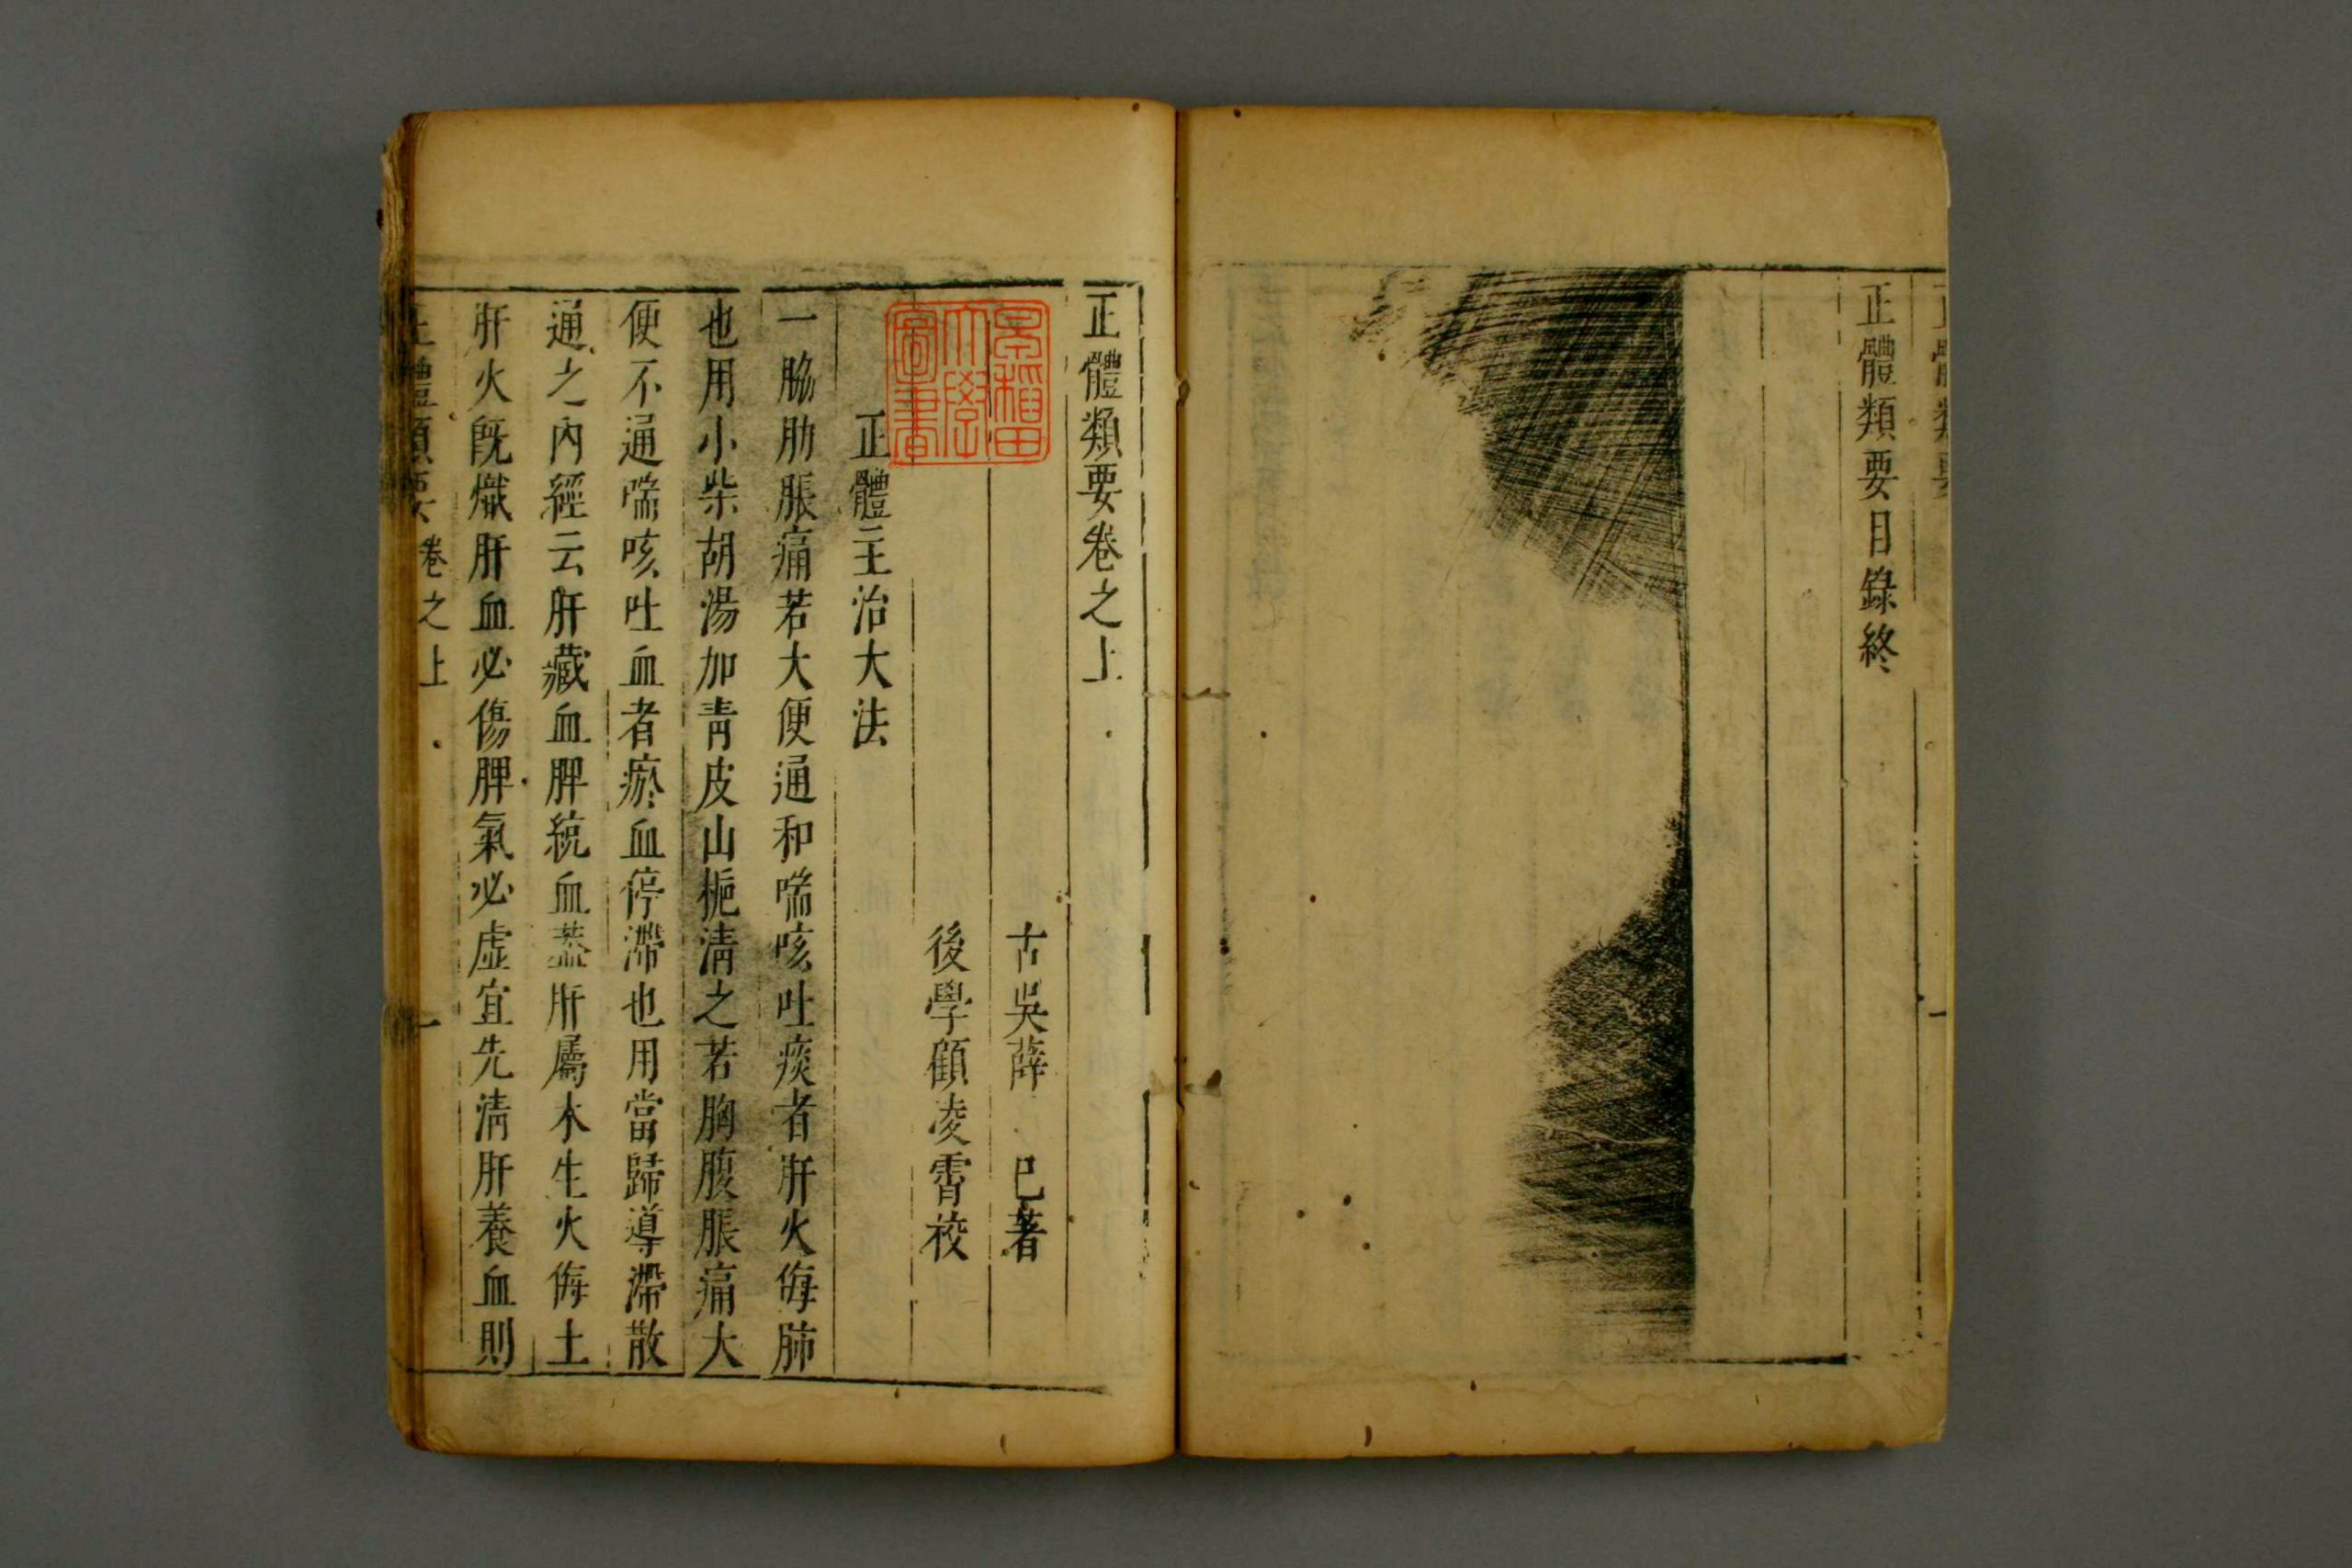 正體類要
正體類要目錄終
正體類要卷之上
古吳薛　已著
後學顧凌霄校
早稲田大學圖書
正體主治大法
一脇肋脹痛若大便通和喘咳吐痰者肝火侮肺
也用小柴胡湯加青皮山梔清之若胸腹脹痛大
便不通喘咳吐血者瘀血停滯也用當歸導滯散
通之內經云肝藏血脾統血葢肝屬木生火侮土
肝火既熾肝血必傷脾氣必虛宜先清肝養血則
正體類要　卷之上　一